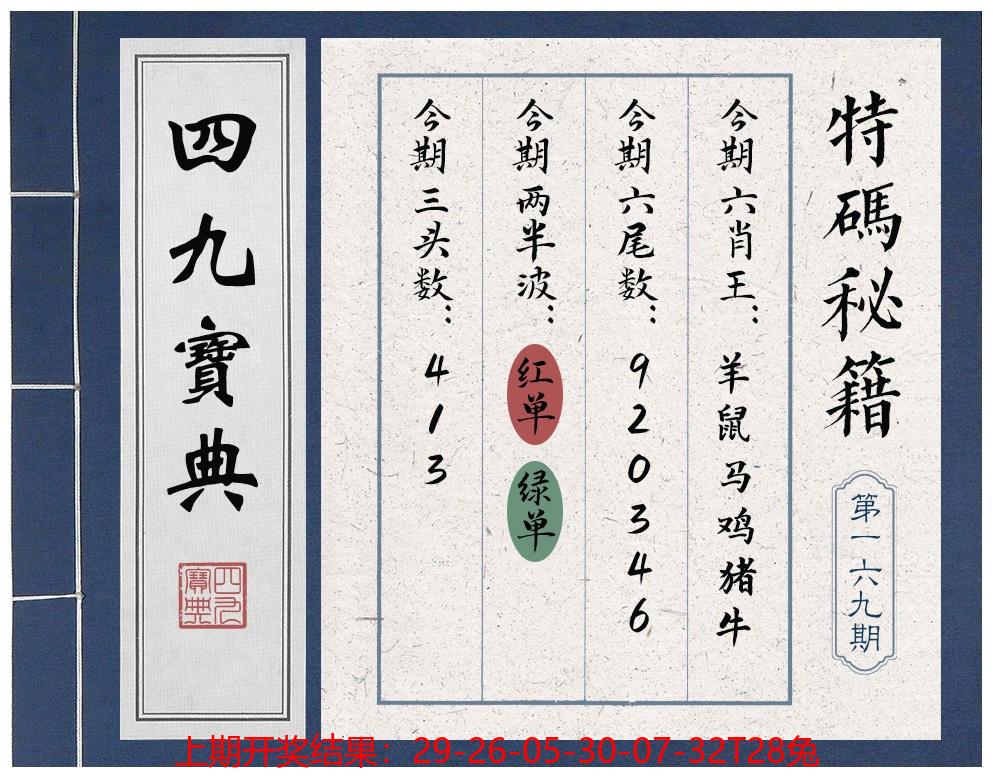 特碼秘籍
第一六九期
今期六肖王：羊鼠马鸡猪牛
今期六尾数：920346
今期两半波：红单 绿单
今期三头数：413
四九寶典
四九寶典
上期开奖结果：29-26-05-30-07-32T28兔